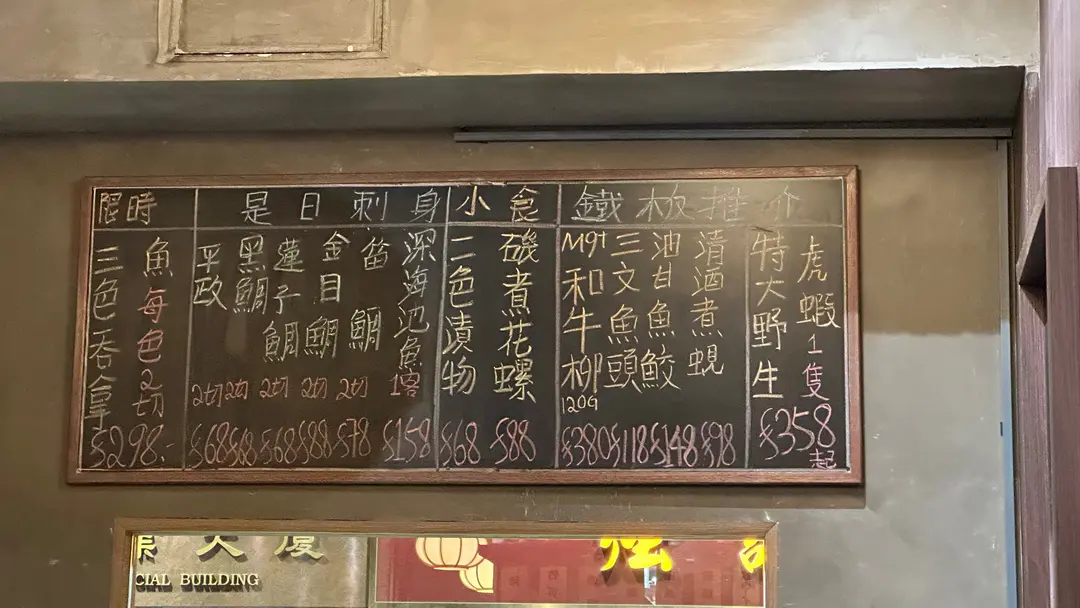 限時
三色吞拿
魚每色2切
$298.-
是日刺身
平政
2切
$68
黑鯛
2切
$68
蓮子鯛
2切
$68
金目鯛
2切
$88
笛鯛
2切
$78
深海池魚
1客
$158
小食
二色漬物
$68
磯煮花螺
$88
鐵板推介
M9+
和牛柳
120G
$380
三文魚頭
$118
油甘魚鮫
$148
清酒煮蜆
$98
特大野生
虎蝦1隻
$358
起
大廈
CIAL BUILDING